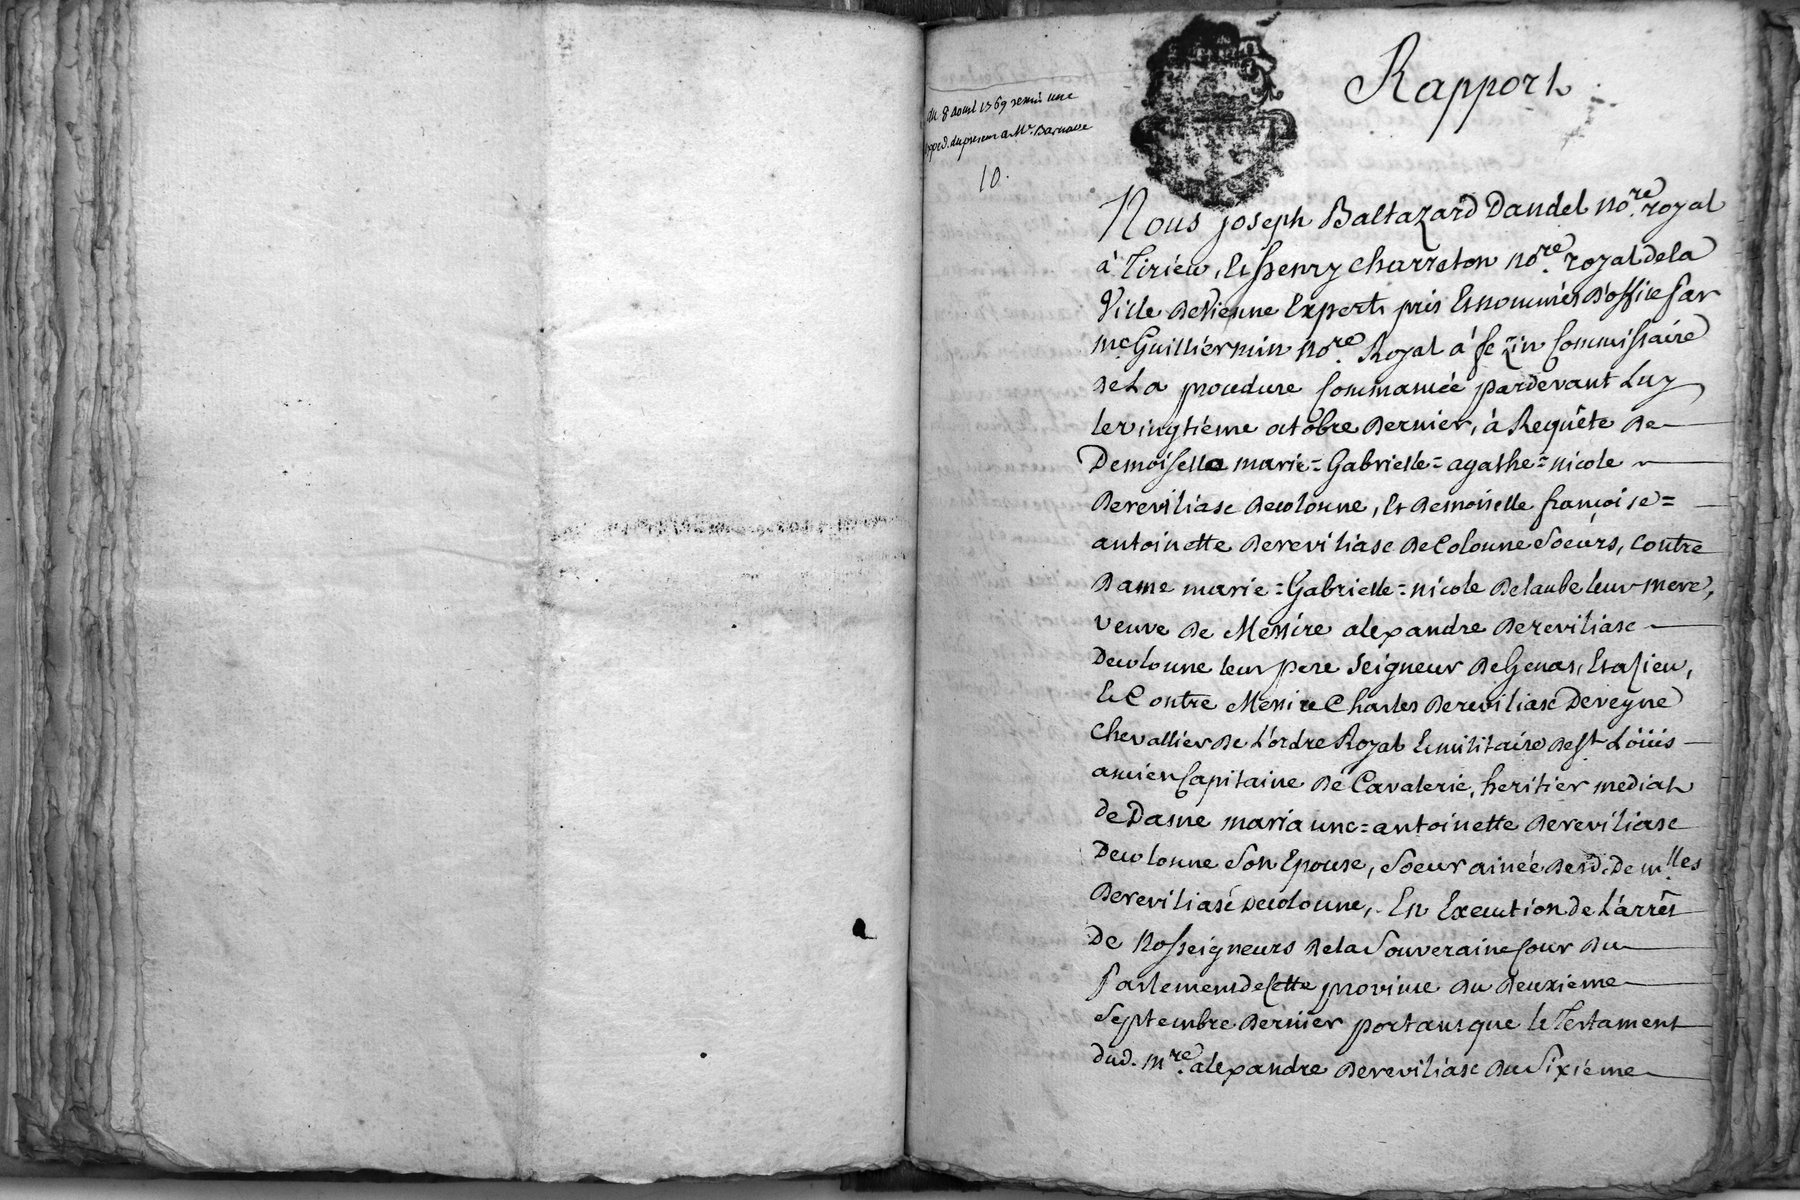 du 8 aoust 1769 remis une
exped. du present a Mr. Barnave
10.
Rapport
Nous joseph Baltazard Dandel nore. royal
à Tirieu, Et henry charreton nore. royal dela
Ville deVienne Experts pris Et nommés d'office par
me. Guilliérmin nore. Royal à fezin Commissaire
de La procedure Commancée pardevant Luy
le vingtiéme octobre dernier, à Requête de
Demoiselle marie=Gabrielle=agathe=nicole
de reviliasc decolonne, Et demoiselle françoise=
antoinette de reviliasc de Colonne Soeurs, contre
dame marie=Gabrielle=nicole de laube leur mere,
veuve de Messire alexandre de reviliasc
decolonne leur pere seigneur de Genas, Et azieu,
Et Contre Messire Charles de reviliasc de veyne
chevallier de L'ordre Royal Et militaire de St Loüis
ancien Capitaine de Cavalerie, heritier mediat
de Dame marianne=antoinette de reviliasc
decolonne Son Epouse, Soeur ainée desd. Demlles
de reviliasc decolonne, En Execution de L'arrêt
de Nosseigneurs de la Souveraine Cour du
Parlement de Cette province du deuxieme
Septembre dernier portant que le Testament
dud. mre. alexandre de reviliasc du Sixiéme